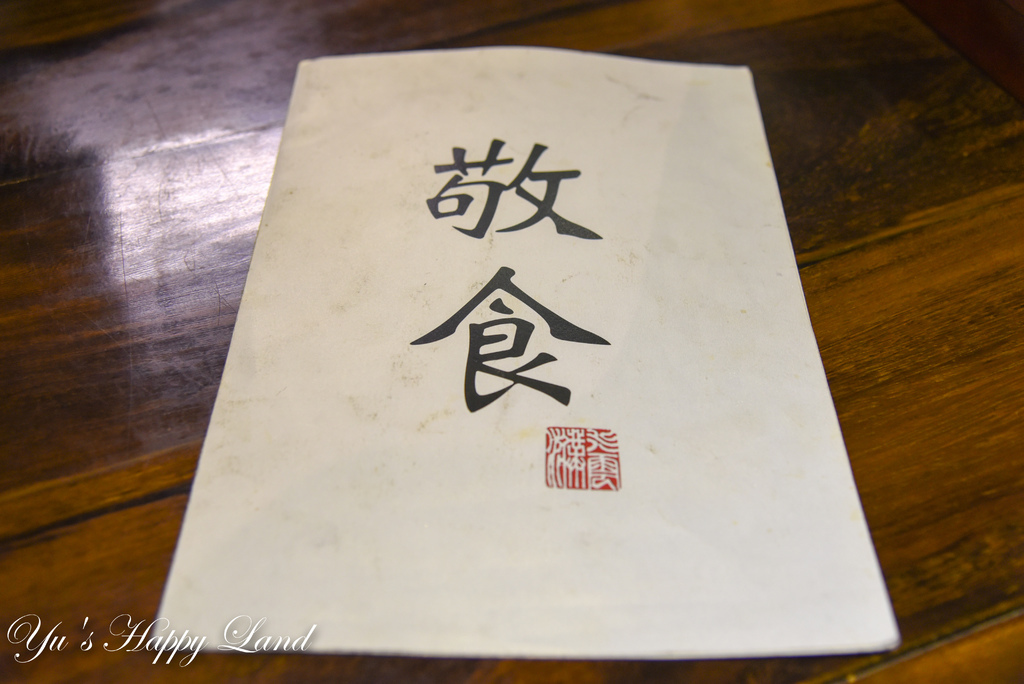 敬
食
Yu's Happy Land